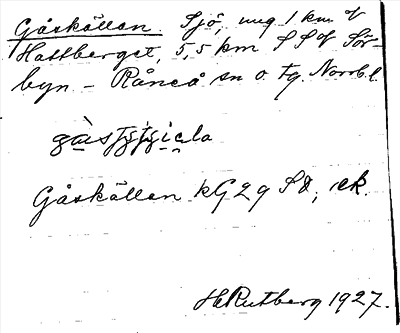 Gåskällen. Sjö, nug 1 km V
Hattberget, 5,5 km SSV Sör-
byn – Råneå sn o tg. Norrb. l.

Gåskällen kG2g SO, ek.
H Rutberg 1927.